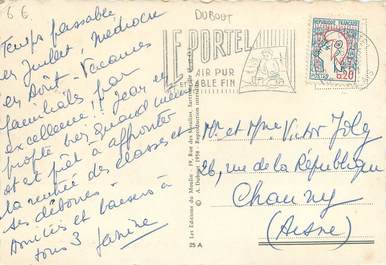 66
DUBOUT
Temps passable
en Juillet, médiocre
en Août - Vacances
familiales par
excellence ! Jean a
profité bien quand même
et est prêt à affronter
la rentrée des classes et
ses déboires -
Amitiés et baisers à
tous 3 Janine
LE PORTEL
AIR PUR
SABLE FIN
REPUBLIQUE FRANCAISE
POSTES
0,20
Les Editions du Moulin - 19, Rue des Moulins,
© A. Dubout 1958 - Reproduction interdite
25 A
Mr et Mme Victor Joly
26, rue de la République
Chauny
(Aisne)